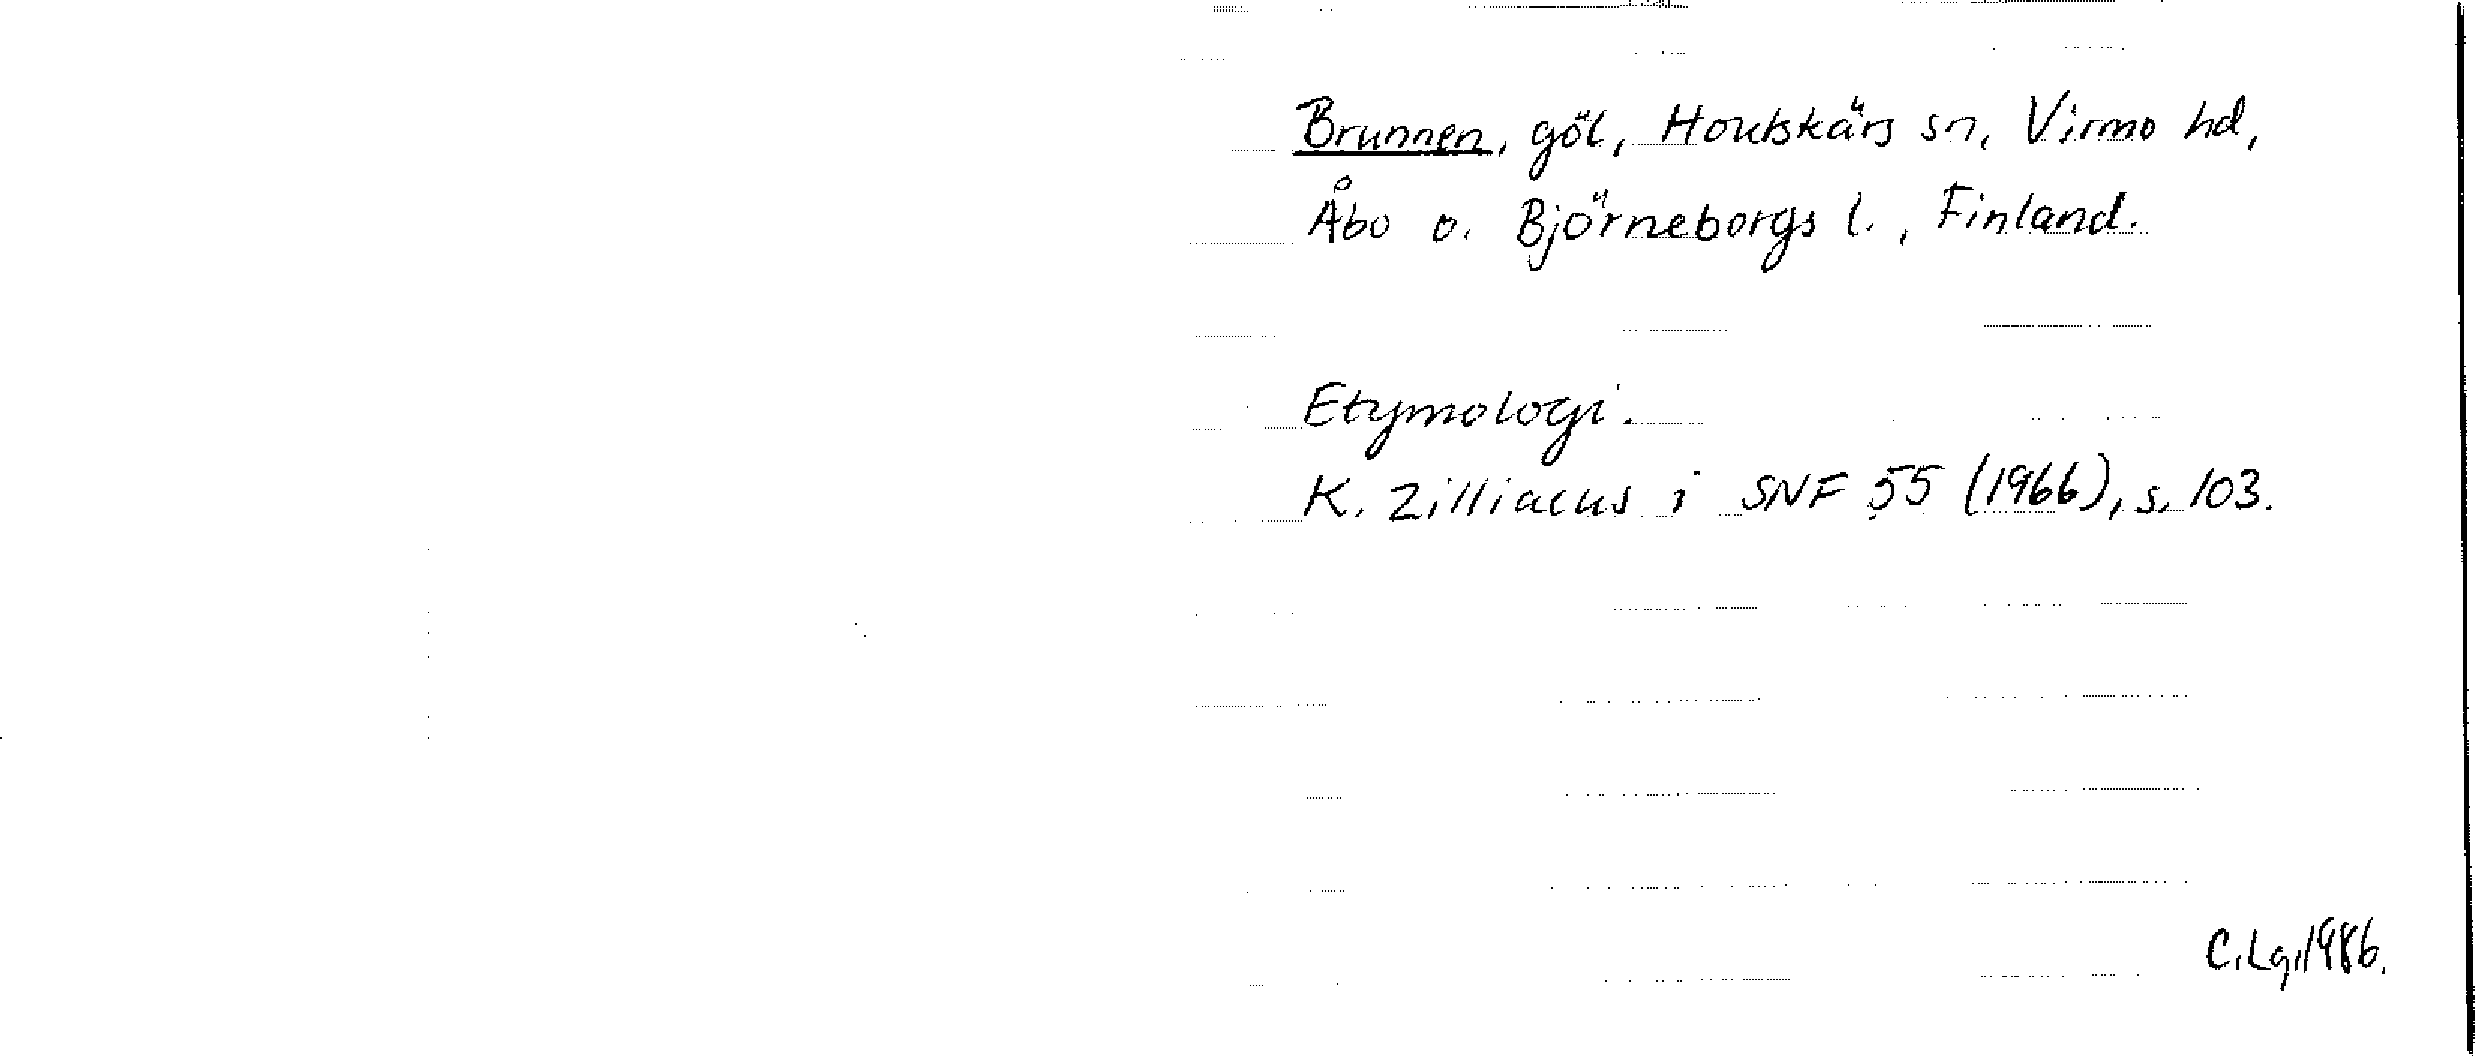 Brunnen, göl, Houtskärs sn, Virmo hd,
Åbo o. Björneborgs l., Finland.
Etymologi.
K. Zilliacus i SNF 55 (1966), s. 103.
C.Lg.1986.